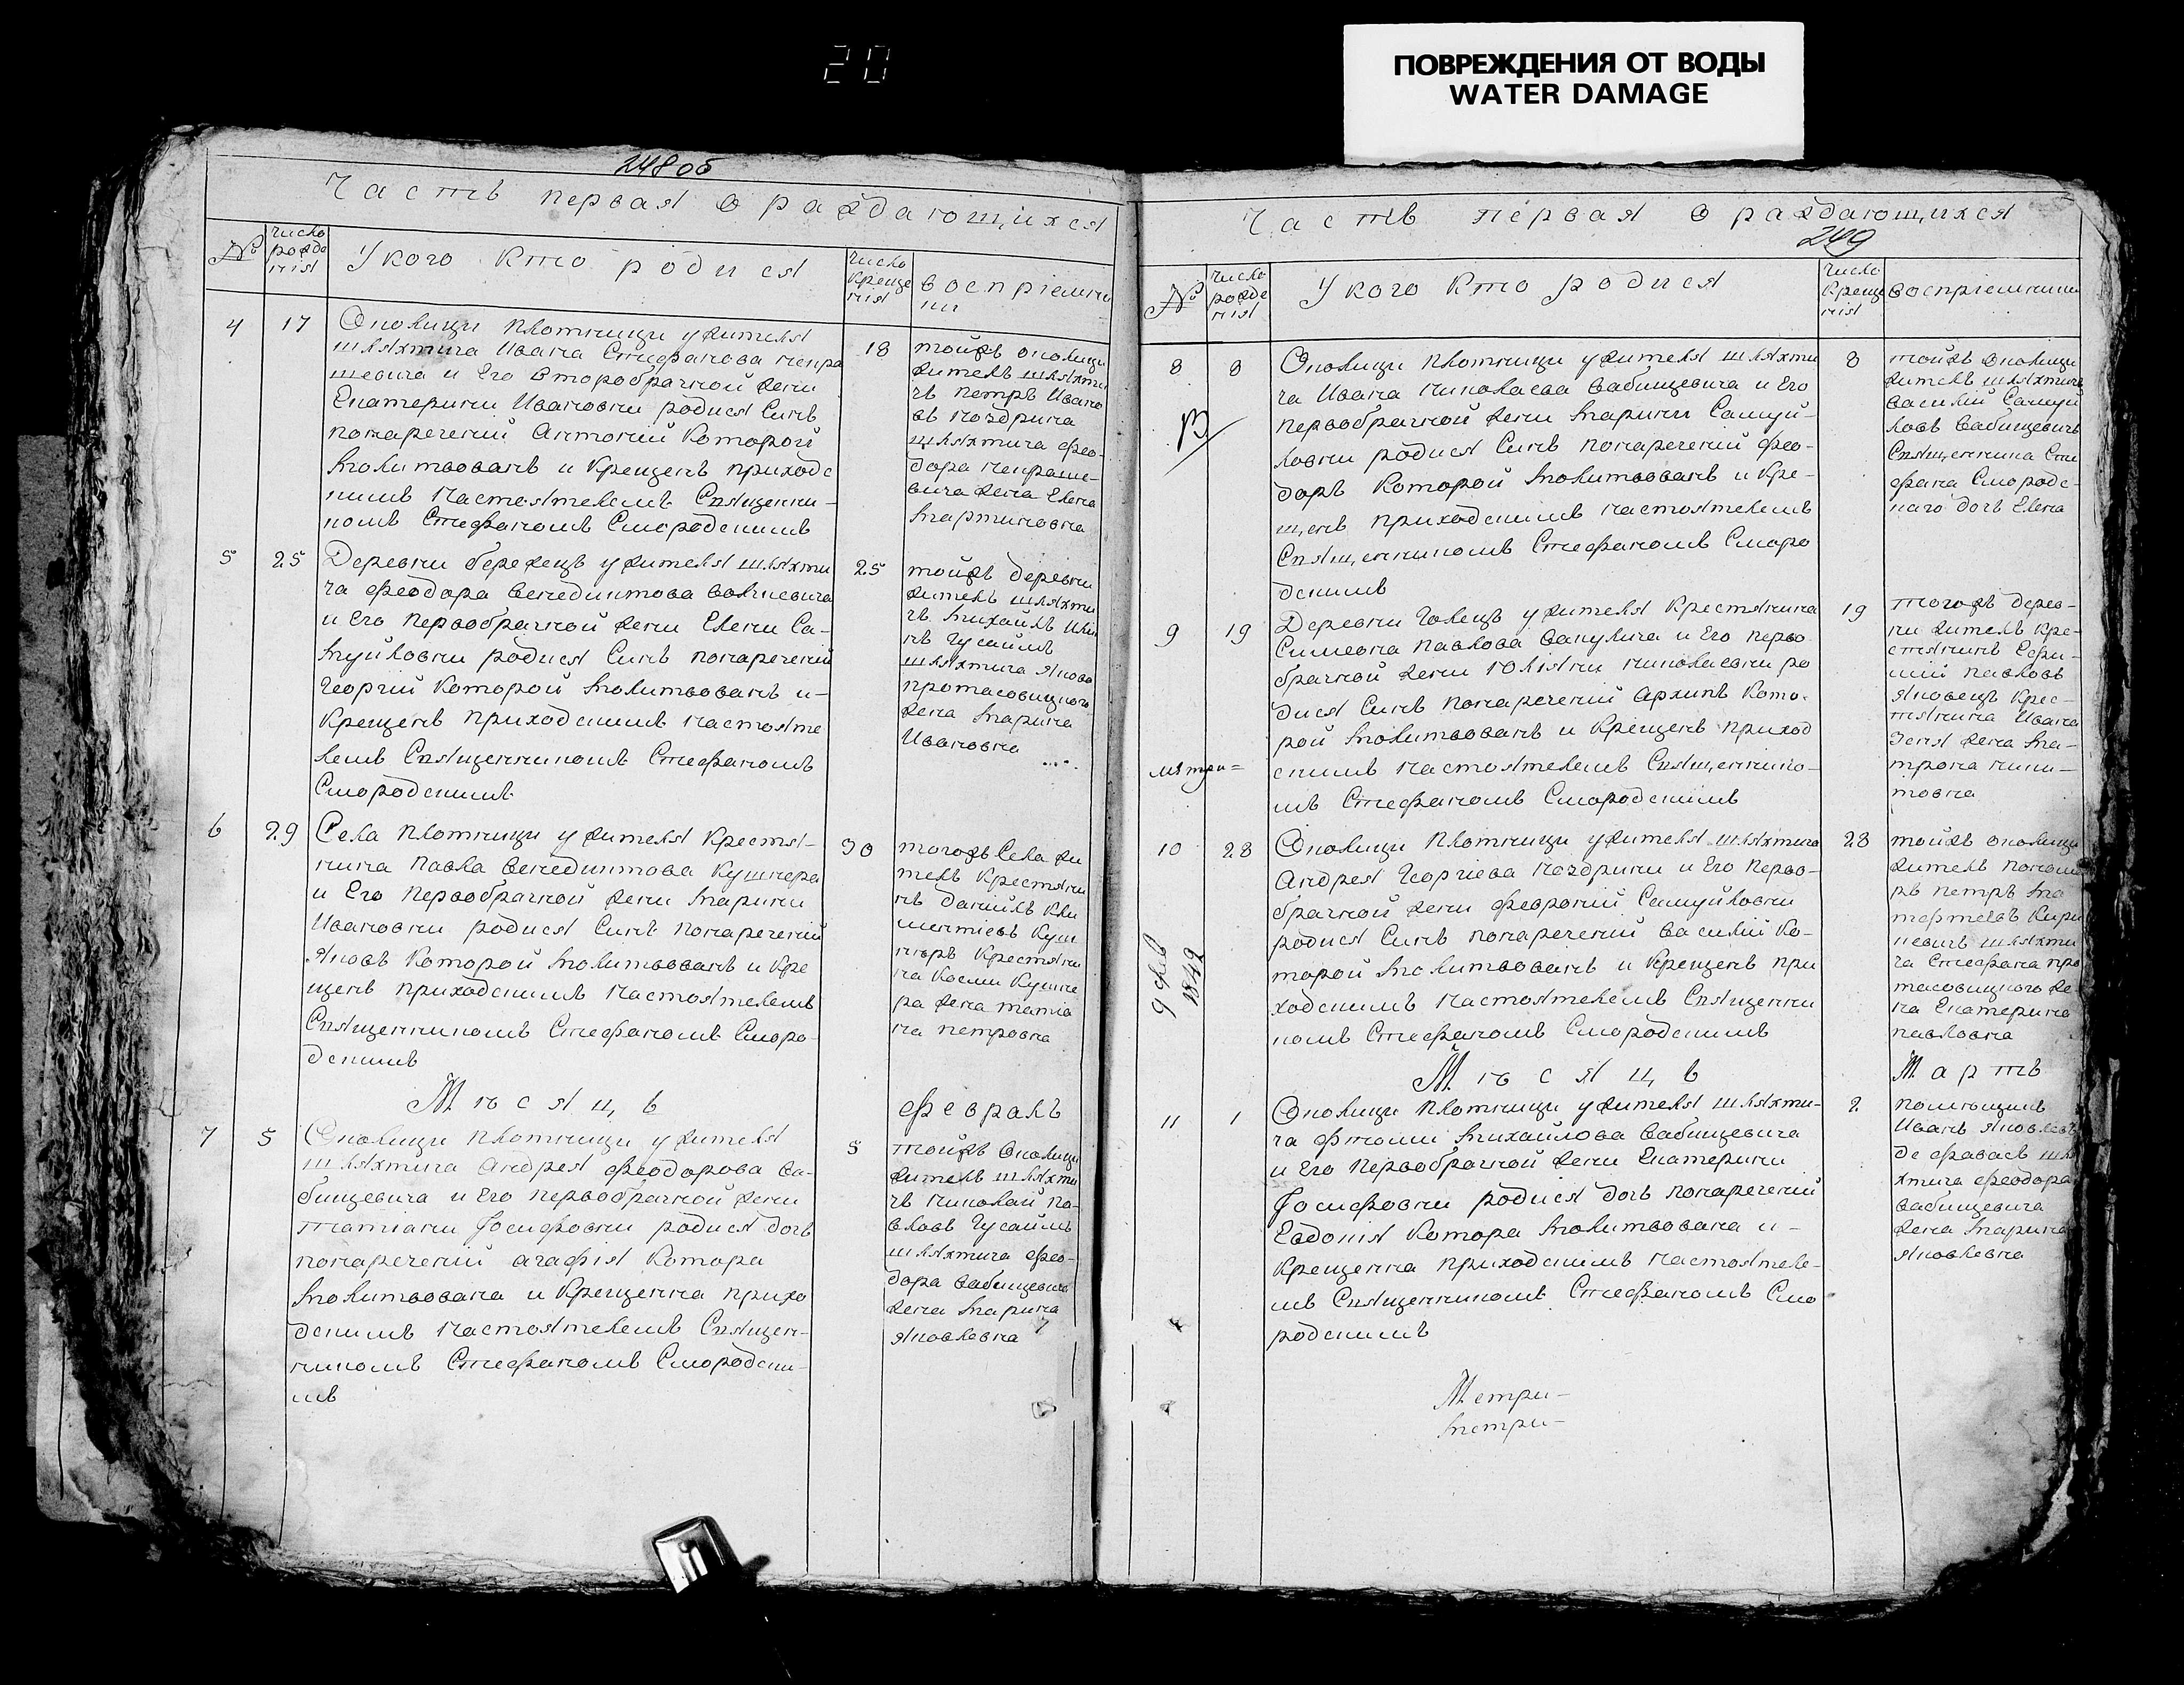 20
ПОВРЕЖДЕНИЯ ОТ ВОДЫ
WATER DAMAGE
248 об
Часть первая о раждающихся
№
число рожде нія
У кого кто родися
число креще нія
воспріемни ки
4
17
Околици Плотници у жителя
шляхтича Ивана Стефанова Непра
шевича и Его второбрачной жени
Екатерини Ивановни родися Синъ
понареченій Антоній Которой
Молитвованъ и Крещенъ приходс
кимъ Настоятелемъ Священни-
комъ Стефаномъ Смородскимъ
18
тойжъ околици
житель шляхти
чъ Петръ Ивано
въ Ноздрина
шляхтича фео-
дора Непраше-
вича жена Елена
Мартиновна
5
25
Деревни бережецъ у жителя шляхти
ча феодора Венедиктова
и Его первобрачной жени Елени Са-
муйловни родися Синъ понареченій
Георгій Которой Молитвованъ и-
Крещенъ приходскимъ Настояте
лемъ Священникомъ Стефаномъ
Смородскимъ
25
тойжъ деревни
житель шляхти
чъ Михаилъ
нъ Гусаимъ
шляхтича Якова
протасовицкого
жена Марина
Ивановна
6
29
Села Плотници у жителя Крестя-
нина Павла Венедиктова Кушнера
и Его первобрачной жени Марини
Ивановни родися Синъ понареченій
Яковъ Которой Молитвованъ и Кре
щенъ приходскимъ Настоятелемъ
Священникомъ Стефаномъ Сморо-
дскимъ
30
тогожъ Села жи
тель Крестяни
нъ Даніилъ Кли
ментіевъ Куш
нѣръ Крестяни
на Косми Кушне
ра жена татіа
на петровна
Мѣсяцъ
февраль
7
5
Околици Плотници у жителя
шляхтича Андрея феодорова Ва-
бищевича и Его первобрачной жени
татіани Іосифовни родися дочъ
понареченій агафія Котора
Молитвована и Крещенна прихо
дскимъ Настоятелемъ Священ-
никомъ Стефаномъ Смородски-
мъ
5
тойжъ Околици
житель шляхти
чъ Николай Па-
вловъ Гусаимъ
шляхтича фео-
дора Вабищевича
жена Марина
Яковлевна
Часть первая о раждающихся
249
№
число рожде нія
У кого кто родися
число Креще нія
воспріемники
8
8
Околици Плотници у жителя шляхти
ча Ивана Николаева Вабищевича и Его
первобрачной жени Марини Самуй-
ловни родися Синъ понареченій фео-
доръ Которой Молитвованъ и Кре-
щенъ приходскимъ Настоятелемъ
Священникомъ Стефаномъ Сморо
дскимъ
8
тойжъ околици
житель шляхтичъ
Василій Самуй
ловъ Вабищевичъ
Священника Сте
фана Смородс-
каго дочъ Елена
9
19
Деревни Голецъ у жителя Крестянина
Симеона Павлова Вакулича и Его перво
брачной жени Юліяни Николаевни ро
дися Синъ понареченій Архипъ Кото-
рой Молитвованъ и Крещенъ приход
скимъ Настоятелемъ Священнико-
мъ Стефаномъ Смородскимъ
19
тогожъ дерев-
ни житель Кре-
стянинъ Ефи-
мій Павловъ
Яковецъ Крес-
тянина Ивана
жена Ма-
трона Ники-
товна
10
28
Околици Плотници у жителя шляхтича
Андрея Георгіева Ноздрини и Его перво-
брачной жени февроній Самуйловни
родися Синъ понареченій Василій Ко-
торой Молитвованъ и Крещенъ при
ходскимъ Настоятелемъ Священни
комъ Стефаномъ Смородскимъ
28
тойжъ околици
житель
ръ Петръ Ма
тефтевъ Кири
невичъ шляхти
ча Стефана про
тасовицкого же
на Екатерина
павловна
9 Фев
1842
Мѣсяцъ
Мартъ
11
1
Околици Плотници у жителя шляхти-
ча фтоми Михаилова Вабищевича
и Его первобрачной жени Екатерини
Іосифовни родися дочъ понареченій
Евдокія Котора Молитвована и-
Крещенна приходскимъ Настояте-
мъ Священникомъ Стефаномъ Смо
родскимъ
2
помѣщикъ
Иванъ Яковлевъ
шля
хтича феодора
Вабищевича
жена Марина
Яковлевна
Метри-
Метри-